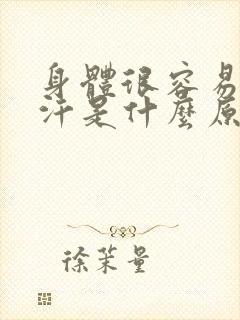 身體很容易
汗是什麼原
徐茉量